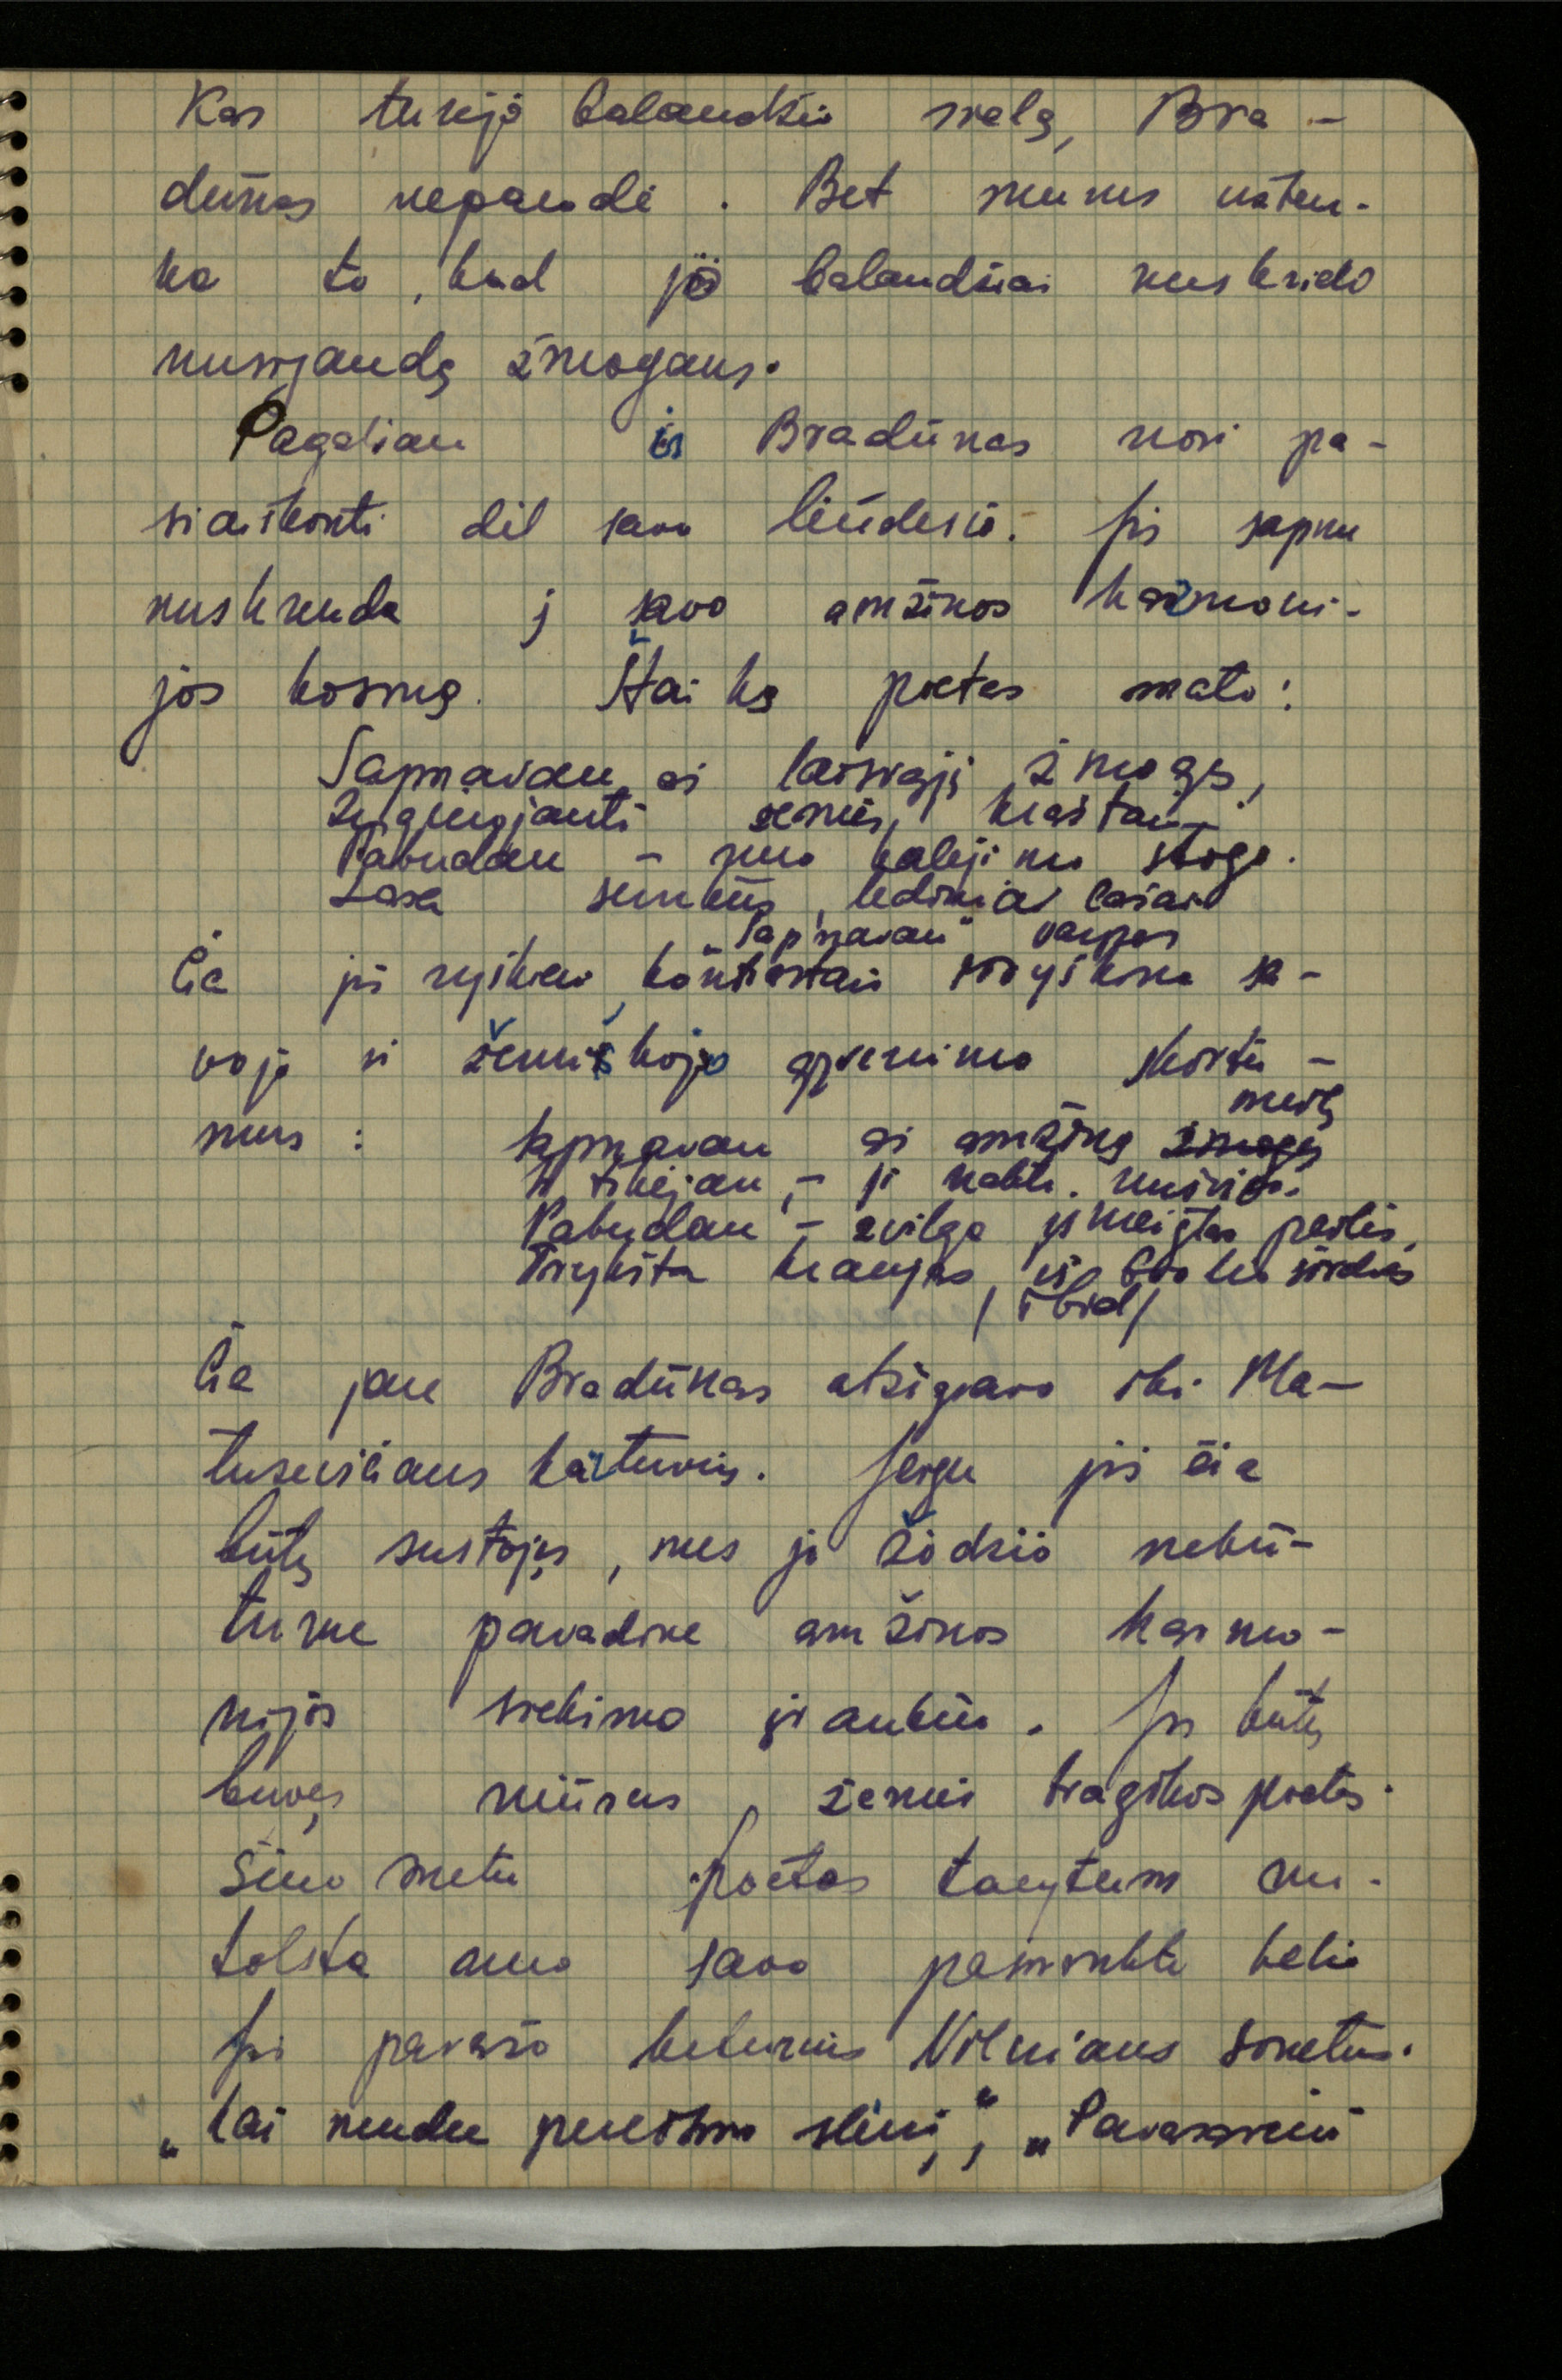 Kas turėjo balandžio sielą, Bra-
dūnas nepasakė. Bet mums užten-
ka to, kad jo balandžiai nuskrido
nusijandę žmogaus.
Pagaliau ir Bradūnas nori pa-
siaiškinti dėl savo liūdesio. Jis sapnu
nuskrenda į savo amžinos harmoni-
jos kosmą. Štai ką poetas mato:
Sapnavau aš laisvąjį žmogų,
Žygiuojantį žemės kraštais.
Pabudau – nuo kalėjimo stogo
Lasa sunkūs, lediniai lašai
"Sapnavau" Varpas
Čia jis ryškiais kontrastais išryškina sa-
vojo ir žemiškojo gyvenimo skirtu-
mus: Sapnavau aš amžiną meilę
Ir tikėjau, – ji naktį nušvis.
Pabudau – žvilga įsmeigtas peilis,
Trykšta kraujas iš boko širdies
/ibid/
Čia jau Bradūnas atsigavo iki Ma-
tusevičiaus kartuvių. Jeigu jis čia
būtų sustojęs, mes jo žodžio nebū-
tume pavadinę amžinos harmo-
nijos siekimo įrankiu. Jis būtų
buvęs niūrus, žemės tragikos poetas.
Šiuo metu poetas tarytum nu-
tolsta nuo savo pamirškta kelio
Jis parašo keturius Vilniaus sonetus.
„Kai rudu purišmo slėnį", „Pavasarinis